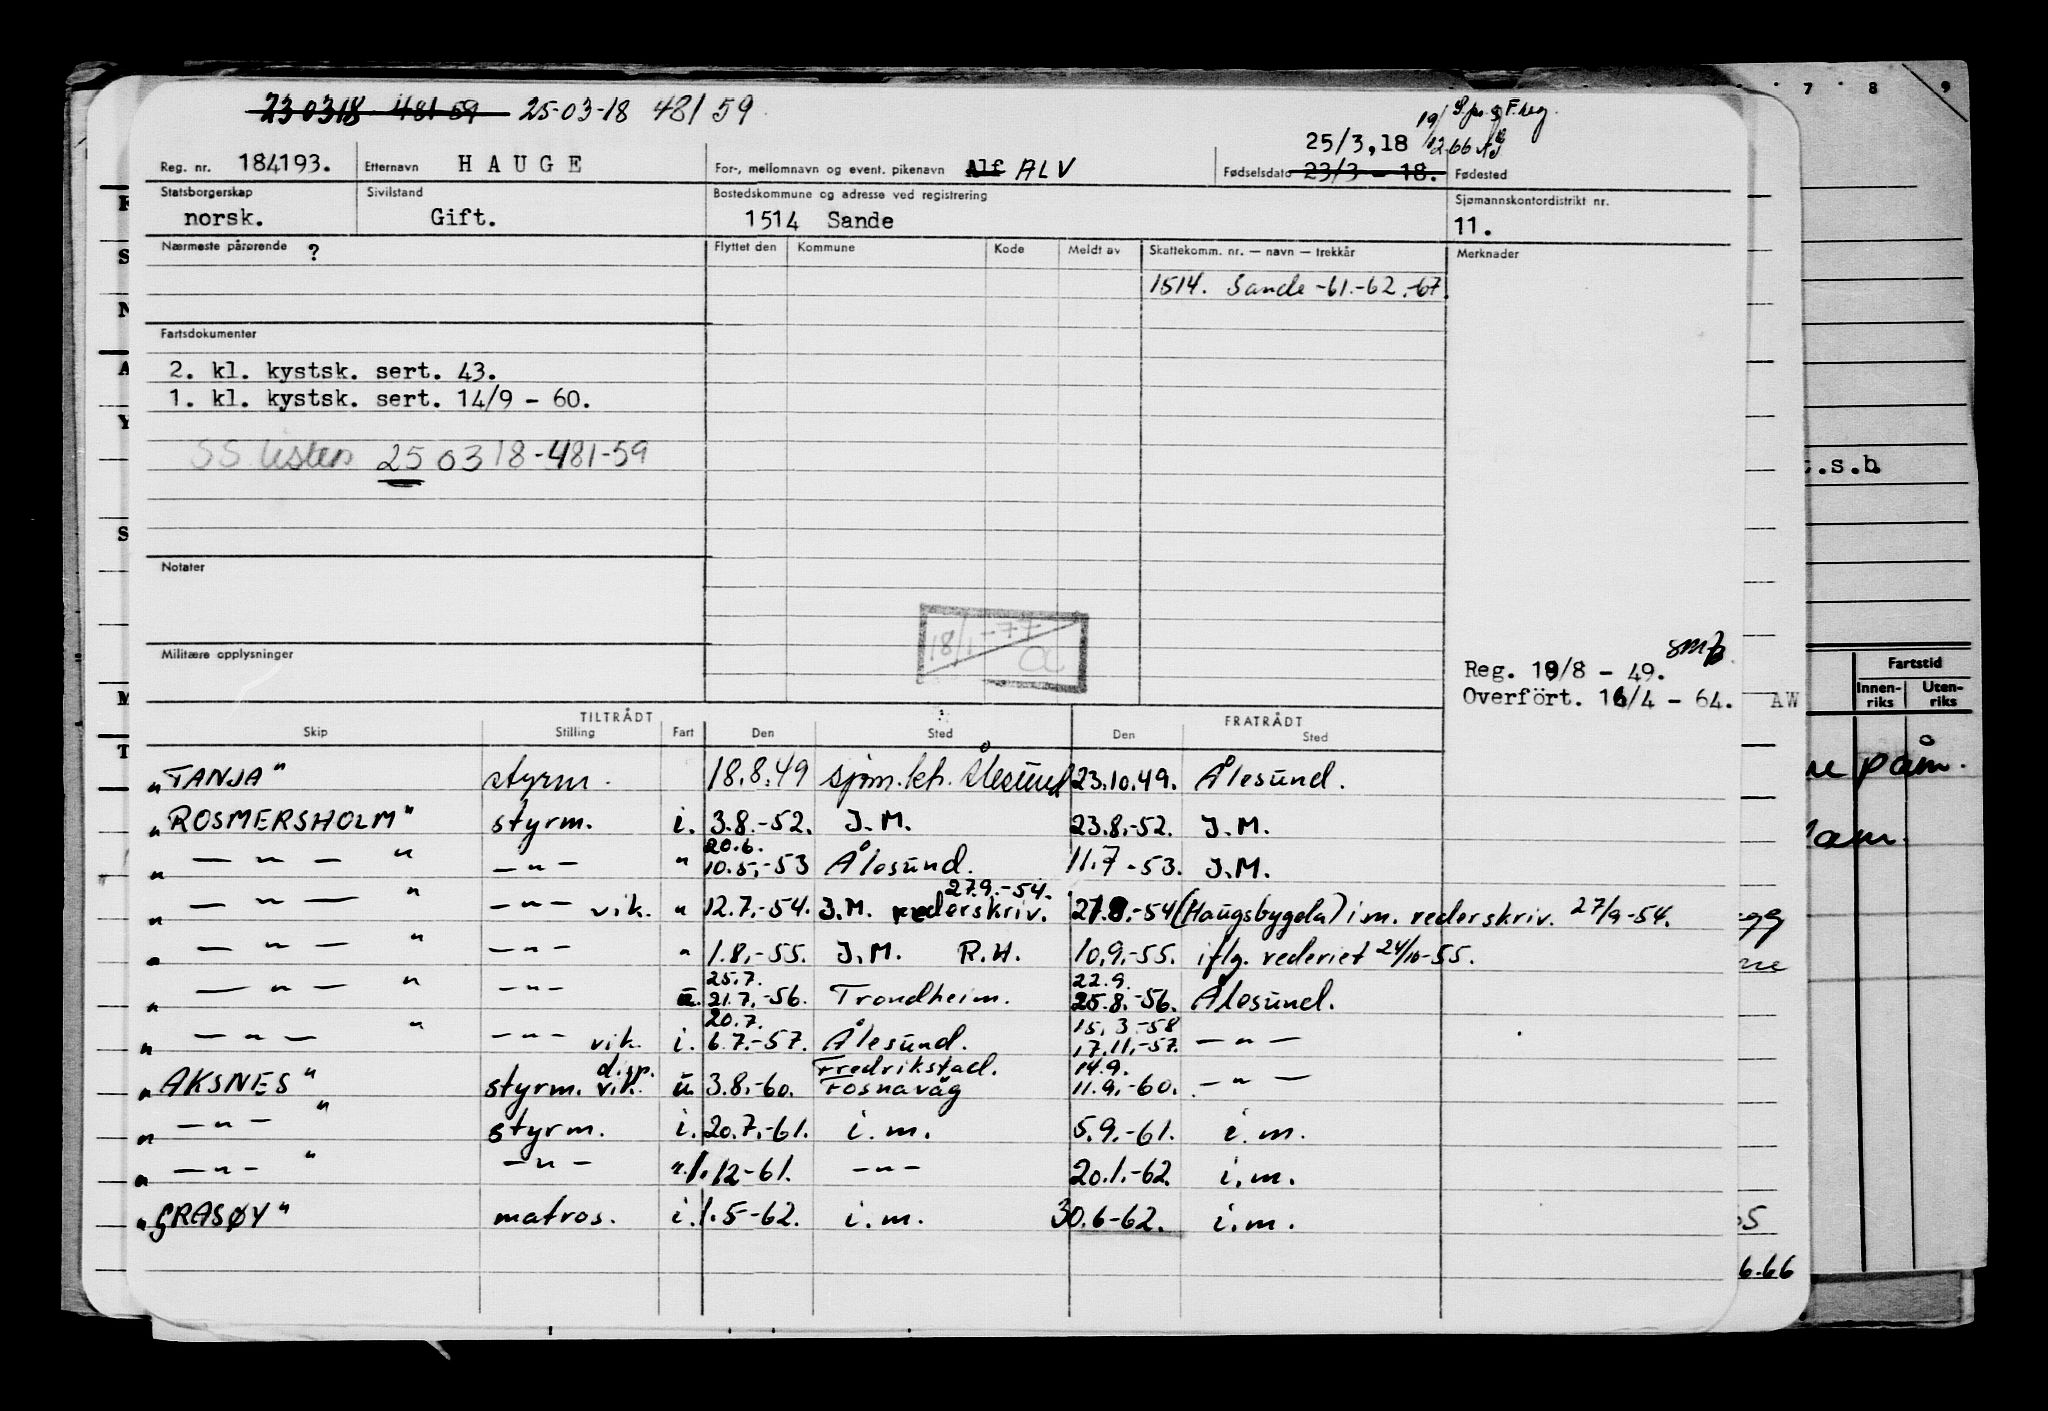 230318 481 59 25-03-18 481 59
25/3,18 19/12.66
Reg. nr. 184193. Etternavn HAUGE For-, mellomnavn og event. pikenavn Alf ALV Fødselsdato 23/3 - 18. Fødested
Statsborgerskap Sivilstand Bostedskommune og adresse ved registrering Sjømannskontordistrikt nr.
norsk. Gift. 1514 Sande 11.
Nærmeste pårørende ? Flyttet den Kommune Kode Meldt av Skattekomm. nr. — navn — trekkår Merknader
1514. Sande -61.-62.-67.
Fartsdokumenter
2. kl. kystsk. sert. 43.
1. kl. kystsk. sert. 14/9 - 60.
SS listen 250318-481-59
Notater
18/1 -77
Militære opplysninger
Reg. 19/8 - 49.
Overfört. 16/4 - 64. AW
TILTRÅDT FRATRÅDT
Skip Stilling Fart Den Sted Den Sted
"TANJA" styrm. 18.8.49 sjøm.ktr. Ålesund 23.10.49. Ålesund.
"ROSMERSHOLM" styrm. i. 3.8.-52. I.M. 23.8.-52. I.M.
20.6.
" — " — " — " — " 10.5.-53 Ålesund. 11.7-53. I.M.
27.9.-54.
" — " — " — " — vik. " 12.7.-54. I.M. rederskriv. 27.8.-54 (Haugsbygda) i.m. rederskriv. 27/9-54.
" — " — " — " — " 1.8.-55. I.M. R.H. 10.9.-55. iflg. rederiet 24/10-55.
25.7. 22.9.
" — " — " — " — u. 21.7.-56. Trondheim. 25.8.-56. Ålesund.
20.7. 15.3.-58
" — " — " — " — vik. i. 6.7.-57. Ålesund. 17.11.-57. — " —
disp. Fredrikstad. 14.9.
"AKSNES" styrm. vik. u. 3.8.-60. Fosnavåg 11.9.-60. — " —
" — " — " styrm. i. 20.7.-61. i.m. 5.9.-61. i.m.
" — " — " — " — " 1.12-61. — " — 20.1.-62. i.m.
"GRASØY" matros. i. 1.5-62. i.m. 30.6-62. i.m.
7 8 9
t.s.h
Fartstid
Innen-riks Uten-riks
påm.
6.66